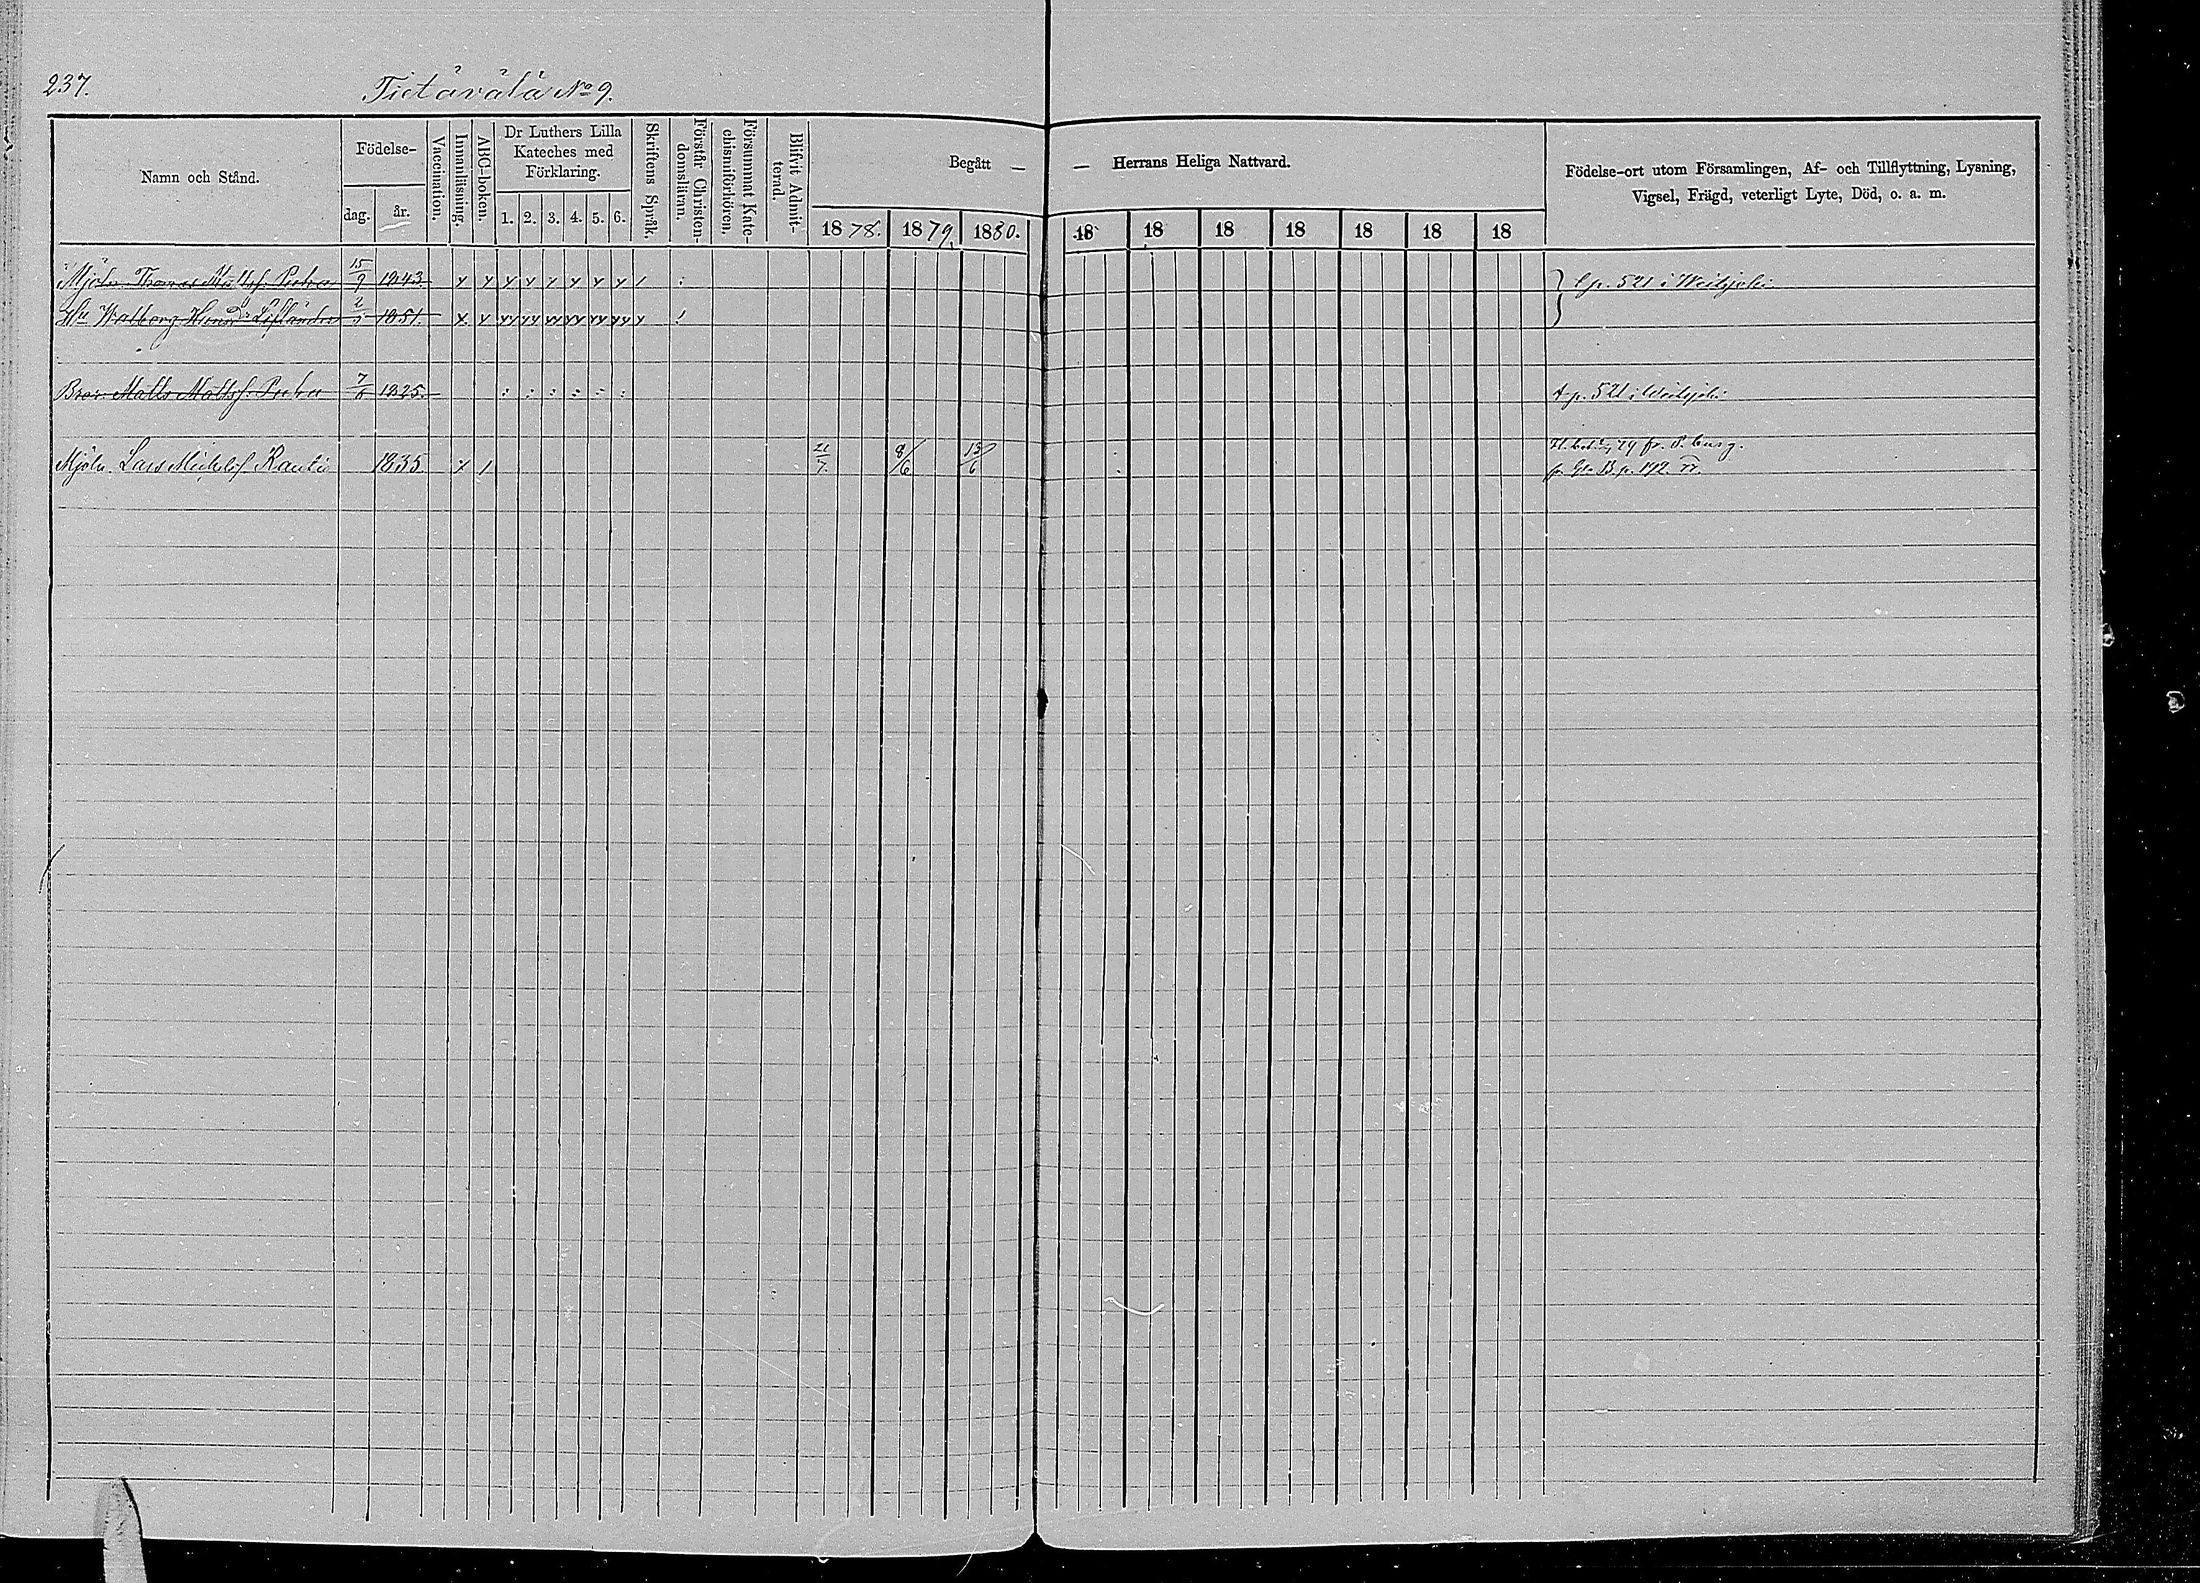 237.
Tietäwälä No 9.
Namn och Stånd.
Födelse-
dag.
år.
Vaccination.
Innanläsning.
ABC-boken.
Dr Luthers Lilla
Kateches med
Förklaring.
1. 2. 3. 4. 5. 6.
Skriftens Språk.
Förstår Christen-
domsläran.
Försummat Kate-
chismiförhören.
Blifvit Admit-
terad.
Begått — — Herrans Heliga Nattvard.
1878. 1879. 1880. 18 18 18 18 18 18 18
Födelse-ort utom Församlingen, Af- och Tillflyttning, Lysning,
Vigsel, Frägd, veterligt Lyte, Död, o. a. m.
Mjöln. Thomas Mattsf. 15/9 1843. x x x x x x x x / : p. 521 i Weihjoki
Hu Walborg 1851. x x xx xx xx xx xx xx x !
Bror Matts Mattsf. 1825. : : : : : : p. 521 i Weihjoki
Mjöln. Lars Michelsf. Rauti 1835 x / 21/7. 8/6 13/6
p. 142.